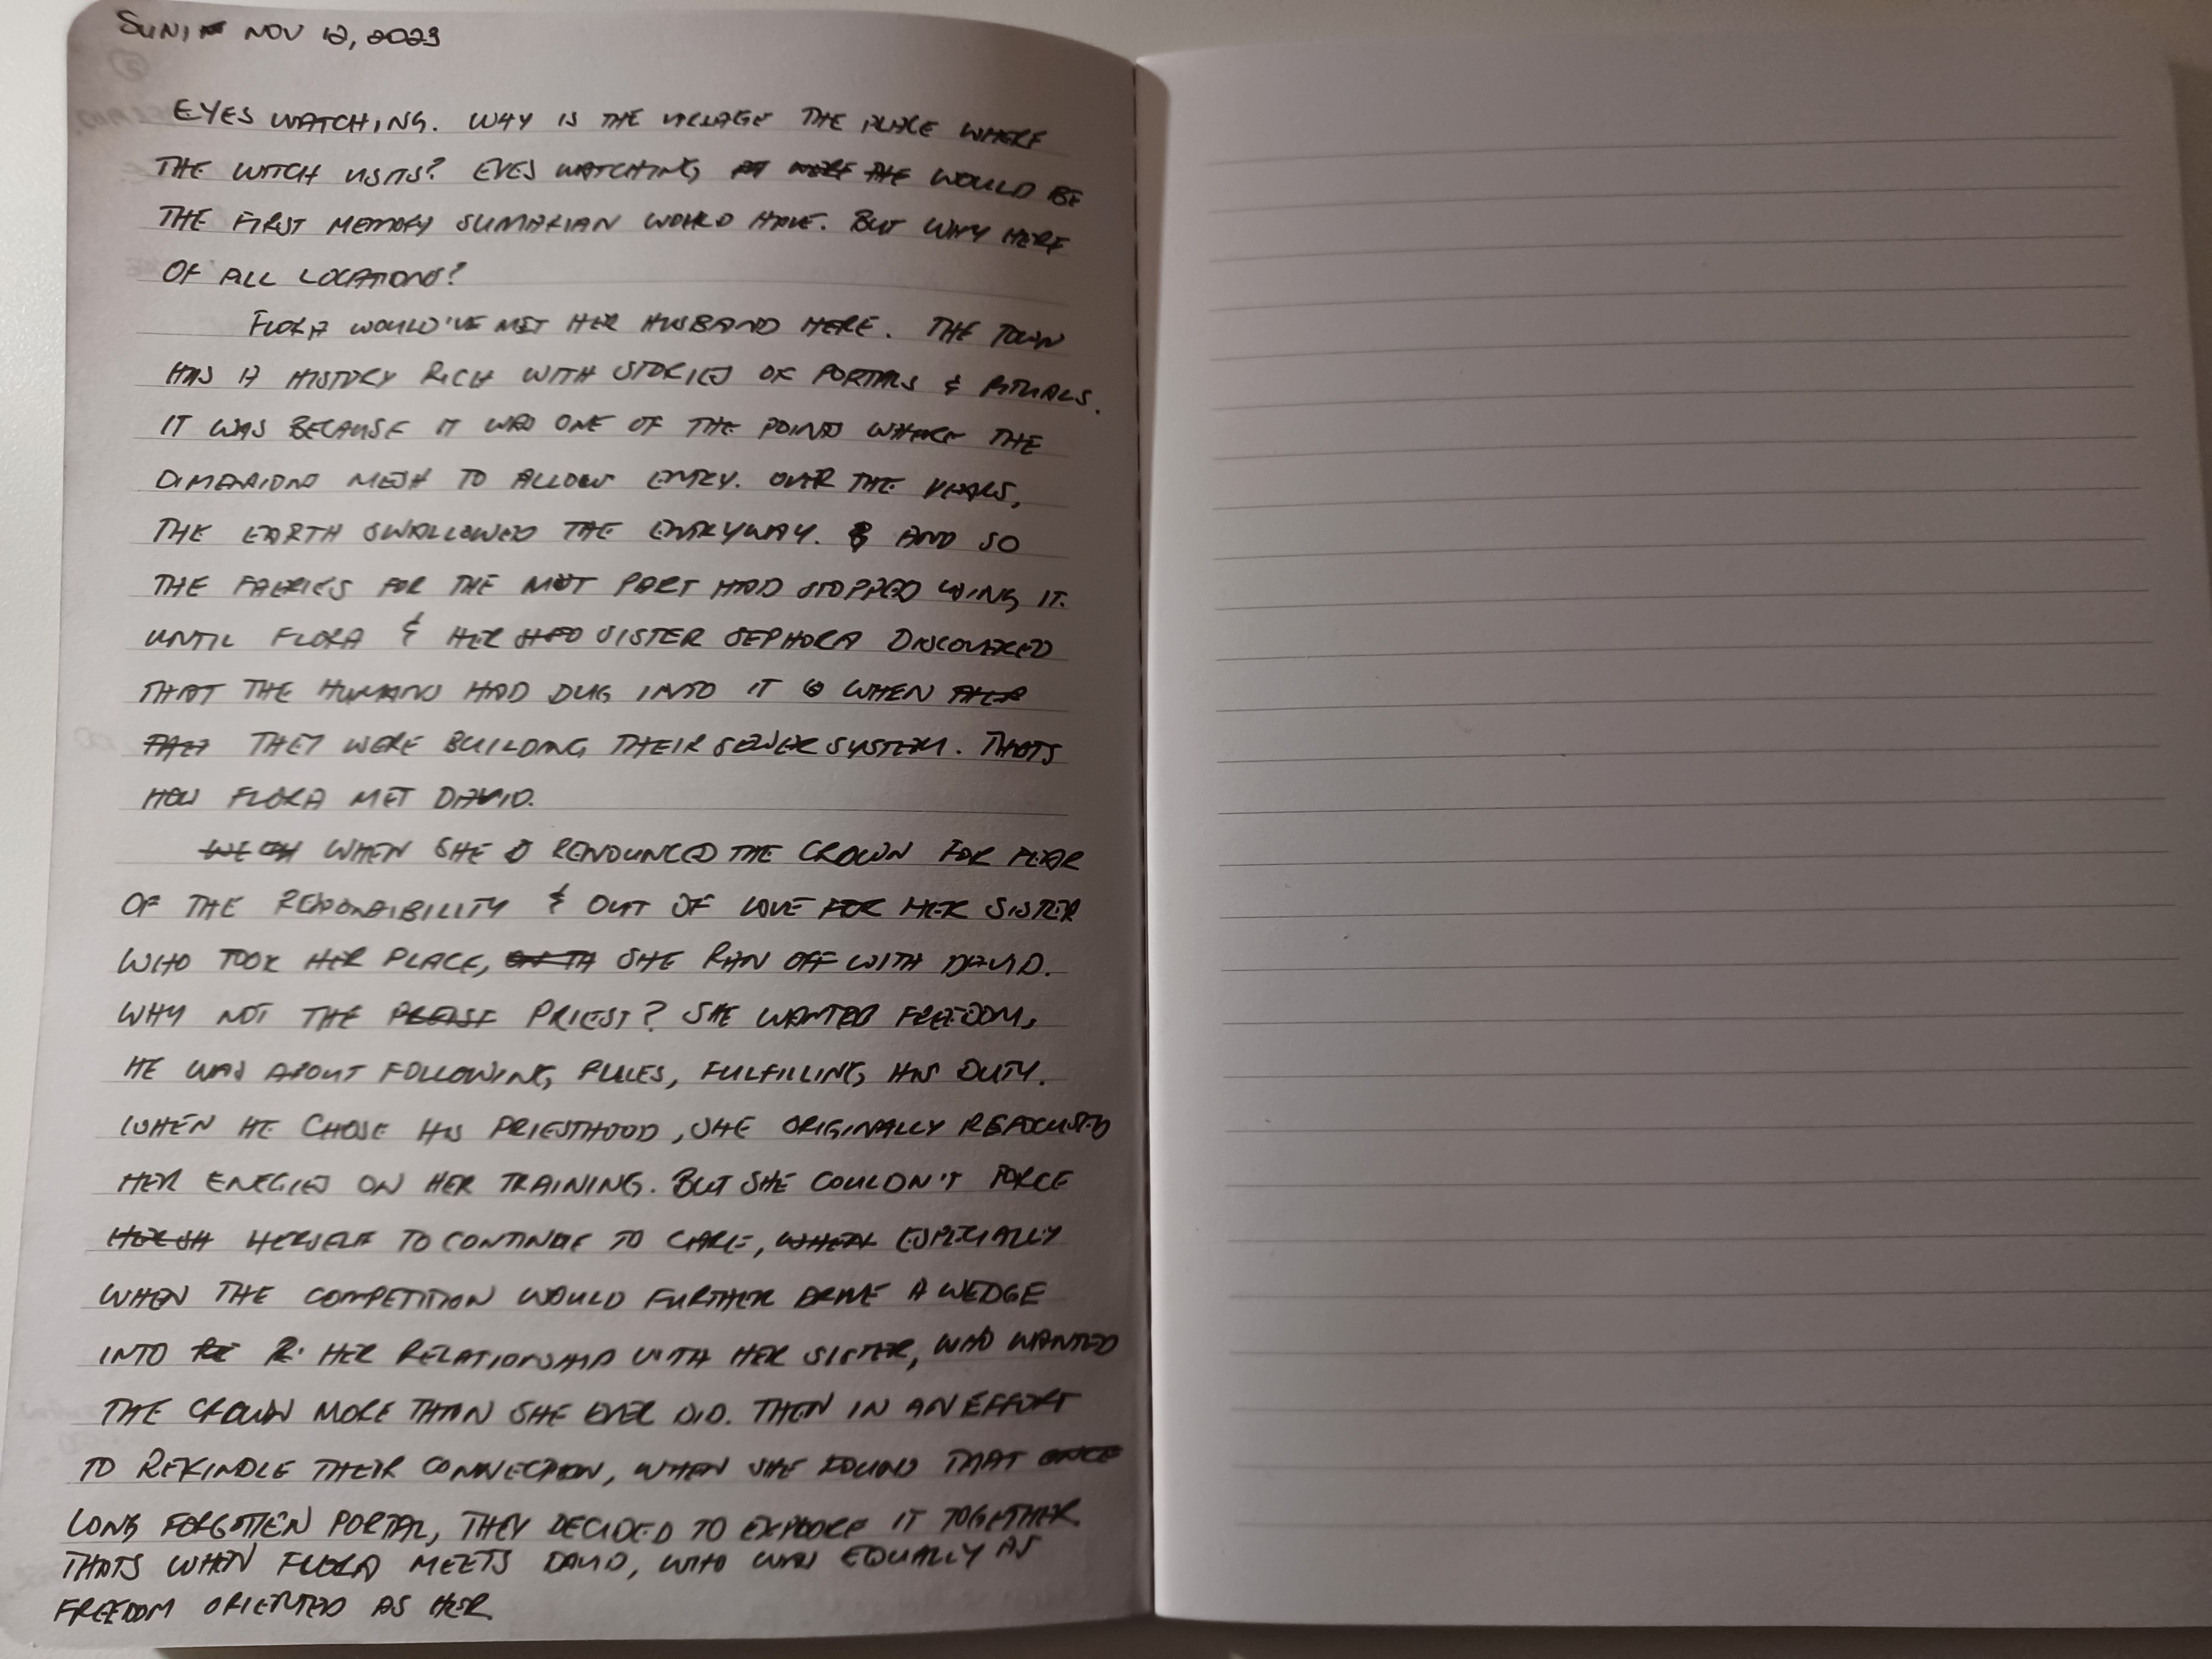 SUN, NOV 12, 2023
EYES WATCHING. WHY IS THE VILLAGE THE PLACE WHERE
THE WITCH VISITS? EYES WATCHING, WOULD BE
THE FIRST MEMORY SUMARIAN WOULD HAVE. BUT WHY HERE
OF ALL LOCATIONS?
FLORA WOULD'VE MET HER HUSBAND HERE. THE TOWN
HAS A HISTORY RICH WITH STORIES OF PORTALS & RITUALS.
IT WAS BECAUSE IT WAS ONE OF THE POINTS WHERE THE
DIMENSIONS MESH TO ALLOW ENTRY. OVER THE YEARS,
THE EARTH SWALLOWED THE ENTRYWAY. AND SO
THE FAERIES FOR THE MOST PART HAD STOPPED USING IT.
UNTIL FLORA & HER SISTER SEPHORA DISCOVERED
THAT THE HUMANS HAD DUG INTO IT WHEN
THEY WERE BUILDING THEIR SEWER SYSTEM. THATS
HOW FLORA MET DAVID.
WHEN SHE RENOUNCED THE CROWN FOR FEAR
OF THE RESPONSIBILITY & OUT OF LOVE FOR HER SISTER
WHO TOOK HER PLACE, SHE RAN OFF WITH DAVID.
WHY NOT THE PRIEST? SHE WANTED FREEDOM,
HE WAS ABOUT FOLLOWING RULES, FULFILLING HIS DUTY.
WHEN HE CHOSE HIS PRIESTHOOD, SHE ORIGINALLY REFOCUSED
HER ENERGIES ON HER TRAINING. BUT SHE COULDN'T FORCE
HERSELF TO CONTINUE TO CARE, ESPECIALLY
WHEN THE COMPETITION WOULD FURTHER DRIVE A WEDGE
INTO HER RELATIONSHIP WITH HER SISTER, WHO WANTED
THE CROWN MORE THAN SHE EVER DID. THEN IN AN EFFORT
TO REKINDLE THEIR CONNECTION, WHEN SHE FOUND THAT
LONG FORGOTTEN PORTAL, THEY DECIDED TO EXPLORE IT TOGETHER.
THATS WHEN FLORA MEETS DAVID, WHO WAS EQUALLY AS
FREEDOM ORIENTED AS HER.